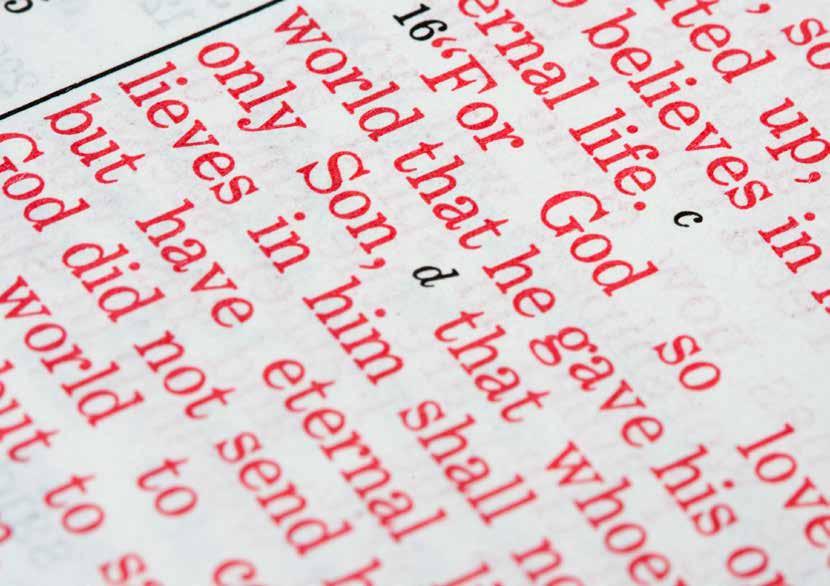 , so
ited up,
believes in
ernal life. c
16 “For God so love
world that he gave his on
only Son, d that whoe
lieves in him shall no
but have eternal li
God did not send h
world to c
ut to sa